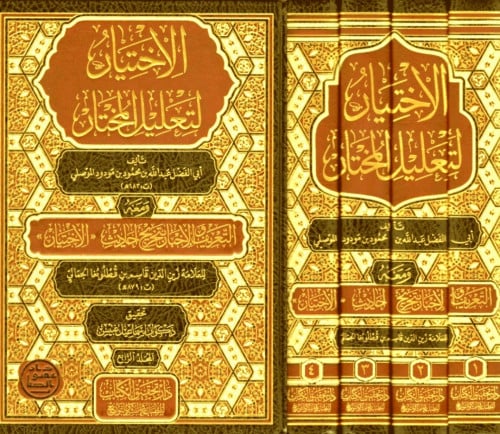 الاختيار
لتعليل المختار
تأليف
أبي الفضل عبدالله بن محمود بن مودود الموصلي
(ت ٦٨٣ هـ)
ومعه
التعريف والإخبار بتخريج أحاديث «الاختيار»
للعلامة زين الدين قاسم بن قطلوبغا الجمالي
(ت ٨٧٩ هـ)
تحقيق
المجلد الرابع
الاختيار
لتعليل المختار
تأليف
أبي الفضل عبدالله بن محمود بن مودود الموصلي
ومعه
التعريف والإخبار بتخريج أحاديث «الاختيار»
للعلامة زين الدين قاسم بن قطلوبغا الجمالي
١
٢
٣
٤